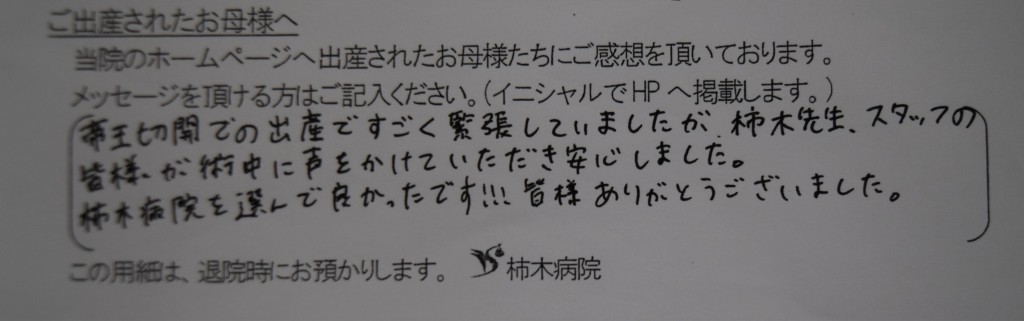 ご出産されたお母様へ
当院のホームページへ出産されたお母様たちにご感想を頂いております。
メッセージを頂ける方はご記入ください。(イニシャルでHPへ掲載します。)
帝王切開での出産ですごく緊張していましたが、柿木先生、スタッフの
皆様が術中に声をかけていただき安心しました。
柿木病院を選んで良かったです!!! 皆様ありがとうございました。
この用細は、退院時にお預かりします。 柿木病院